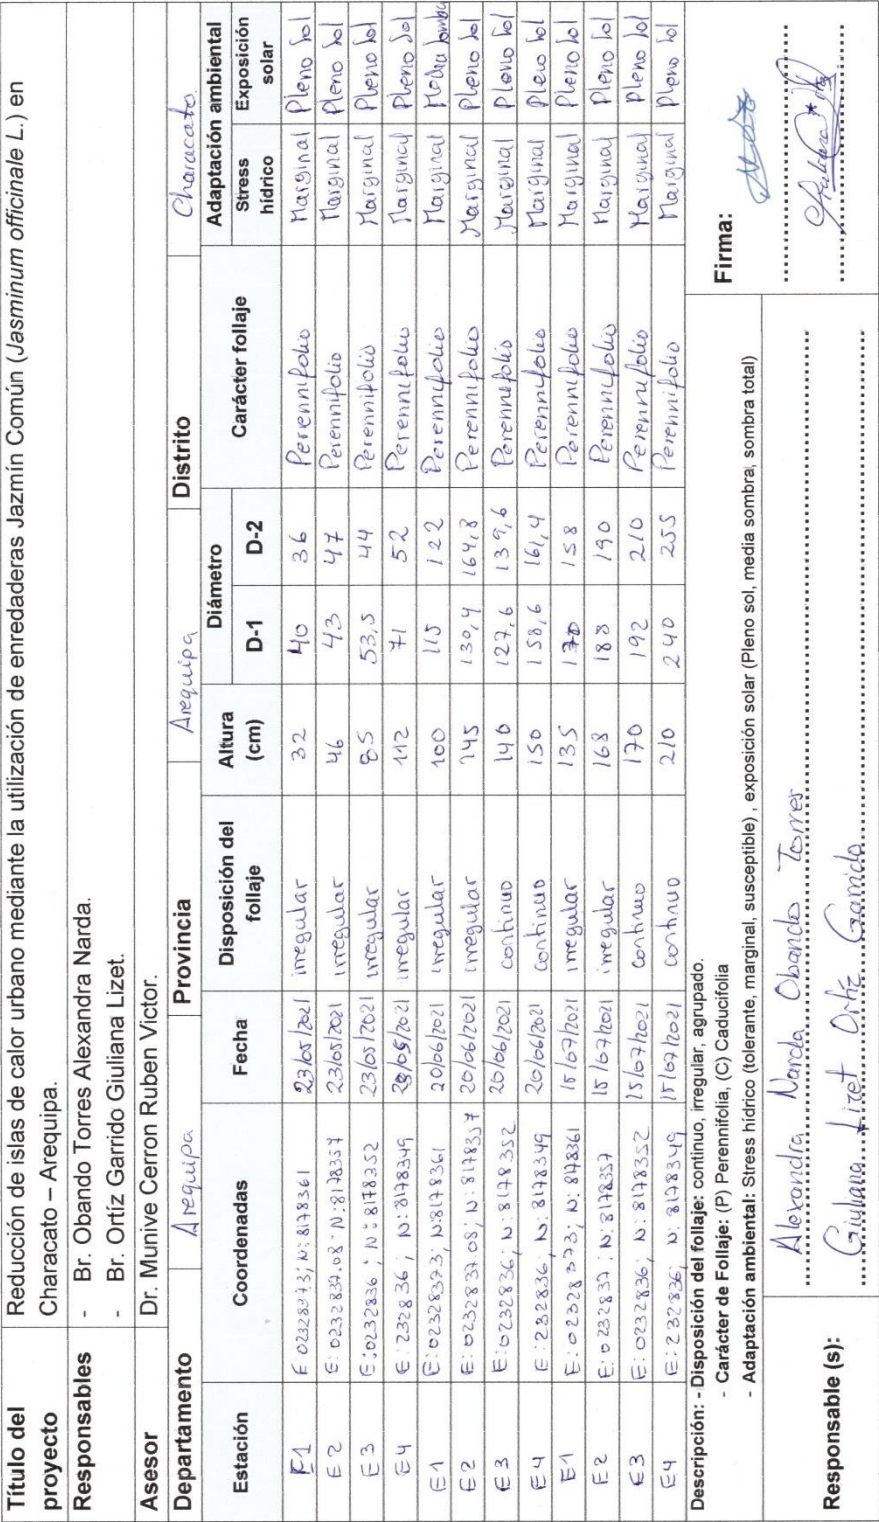 Título del proyecto Reducción de islas de calor urbano mediante la utilización de enredaderas Jazmín Común (Jasminum officinale L.) en
Characato – Arequipa.
Responsables - Br. Obando Torres Alexandra Narda.
- Br. Ortíz Garrido Giuliana Lizet.
Asesor Dr. Munive Cerron Ruben Victor.
Departamento Arequipa Provincia Arequipa Distrito Characato
Estación Coordenadas Fecha Disposición del follaje Altura (cm) Diámetro D-1 D-2 Carácter follaje Adaptación ambiental Stress hídrico Exposición solar
E1 E 02328373; N: 8178361 23/05/2021 irregular 32 40 36 Perennifolio Marginal Pleno Sol
E2 E: 0232837.08 - N: 8178357 23/05/2021 irregular 46 43 47 Perennifolio Marginal Pleno Sol
E3 E: 0232836 ; N: 8178352 23/05/2021 irregular 85 53,5 44 Perennifolio Marginal Pleno Sol
E4 E: 232836 ; N: 8178349 23/05/2021 irregular 112 71 52 Perennifolio Marginal Pleno Sol
E1 E: 02328373; N: 8178361 20/06/2021 irregular 100 115 122 Perennifolio Marginal Media Sombra
E2 E: 0232837.08; N: 8178357 20/06/2021 irregular 145 130,4 164,8 Perennifolio Marginal Pleno Sol
E3 E: 0232836; N: 8178352 20/06/2021 continuo 140 127,6 139,6 Perennifolio Marginal Pleno Sol
E4 E: 232836; N: 8178349 20/06/2021 continuo 150 158,6 161,4 Perennifolio Marginal Pleno Sol
E1 E: 02328373; N: 8178361 15/07/2021 irregular 135 170 158 Perennifolio Marginal Pleno Sol
E2 E: 0232837; N: 8178357 15/07/2021 irregular 168 188 190 Perennifolio Marginal Pleno Sol
E3 E: 0232836; N: 8178352 15/07/2021 continuo 170 192 210 Perennifolio Marginal Pleno Sol
E4 E: 232836; N: 8178349 15/07/2021 continuo 210 240 255 Perennifolio Marginal Pleno Sol
Descripción: - Disposición del follaje: continuo, irregular, agrupado.
- Carácter de Follaje: (P) Perennifolia, (C) Caducifolia
- Adaptación ambiental: Stress hídrico (tolerante, marginal, susceptible) , exposición solar (Pleno sol, media sombra, sombra total)
Responsable (s): Alexandra Narda Obando Torres
Giuliana Lizet Ortíz Garrido
Firma: